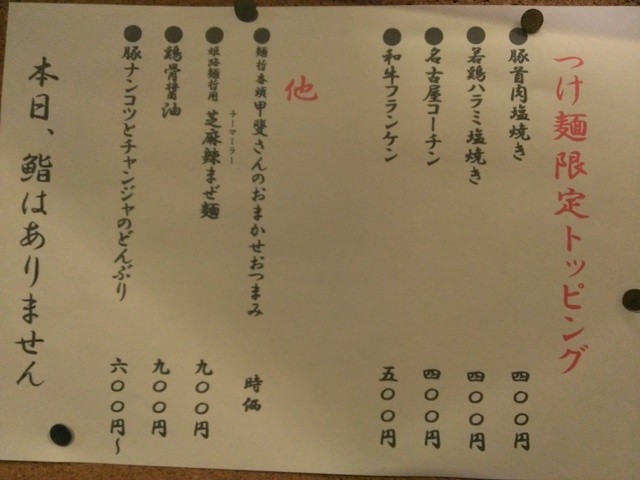 つけ麺限定トッピング
●豚首肉塩焼き 四〇〇円
●若鶏ハラミ塩焼き 四〇〇円
●名古屋コーチン 四〇〇円
●和牛フランケン 五〇〇円
他
●麺哲巻頭甲斐さんのおまかせおつまみ 時価
●姫路麺哲用 芝麻辣まぜ麺 九〇〇円
チーマーラー
●鶏骨醤油 九〇〇円
●豚ナンコツとチャンジャのどんぶり 六〇〇円〜
本日、鮨はありません